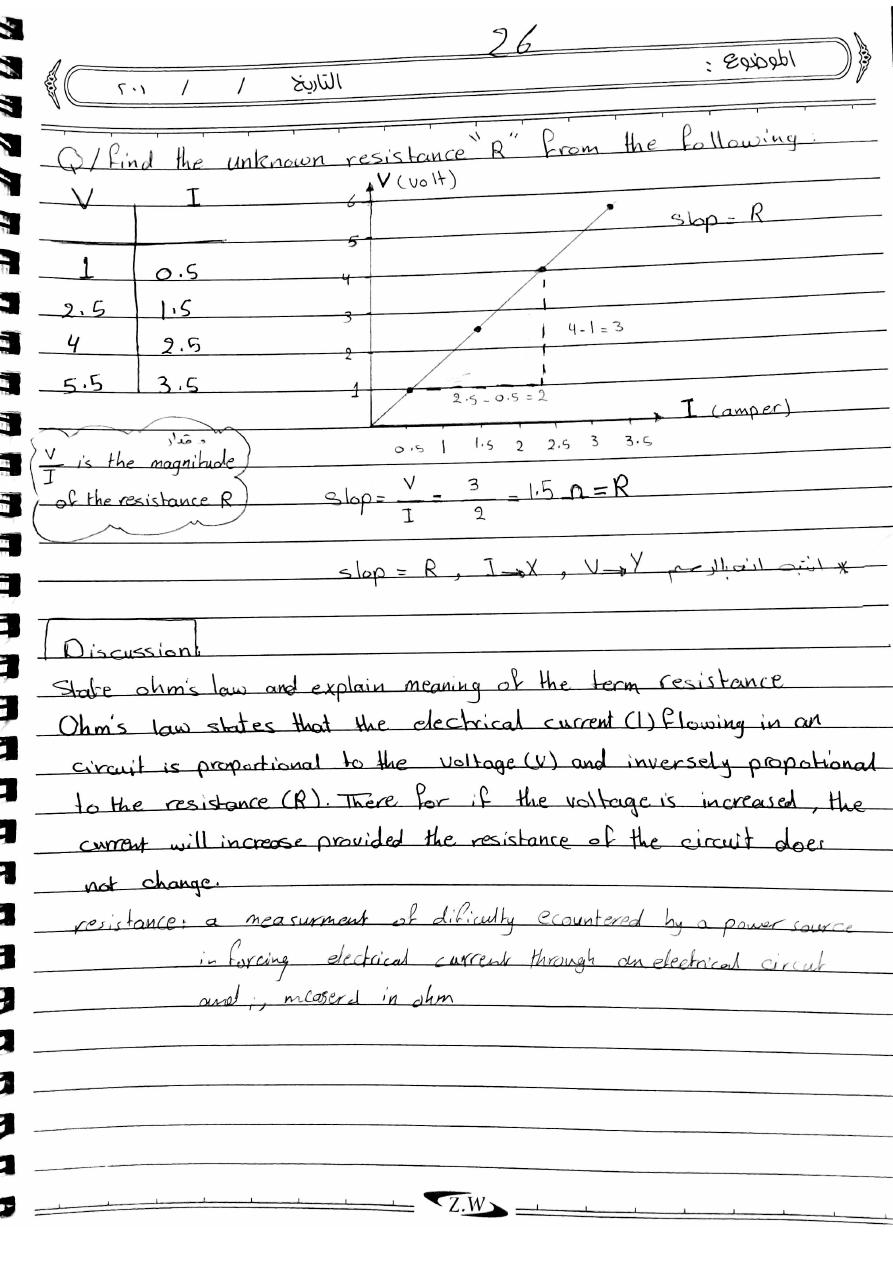 26
الموضوع :
التاريخ / / ٢٠١
Q/find the unknown resistance "R" from the following:
V I
1 0.5
2.5 1.5
4 2.5
5.5 3.5
V (volt)
6
5
4
3
2
1
slop = R
4-1=3
2.5-0.5=2
I (amper)
0.5 1 1.5 2 2.5 3 3.5
مقدار
V/I is the magnitude
of the resistance R
Slop = V/I = 3/2 = 1.5 Ω = R
* slop = R , I→X , V→Y
Discussion
State ohm's law and explain meaning of the term resistance
Ohm's law states that the electrical current (I) flowing in an
circuit is proportional to the voltage (V) and inversely propotional
to the resistance (R). There for if the voltage is increased, the
current will increase provided the resistance of the circuit does
not change.
resistance: a measurment of dificulty ecountered by a power source
in forcing electrical current through an electrical circut
and measerd in ohm
Z.W